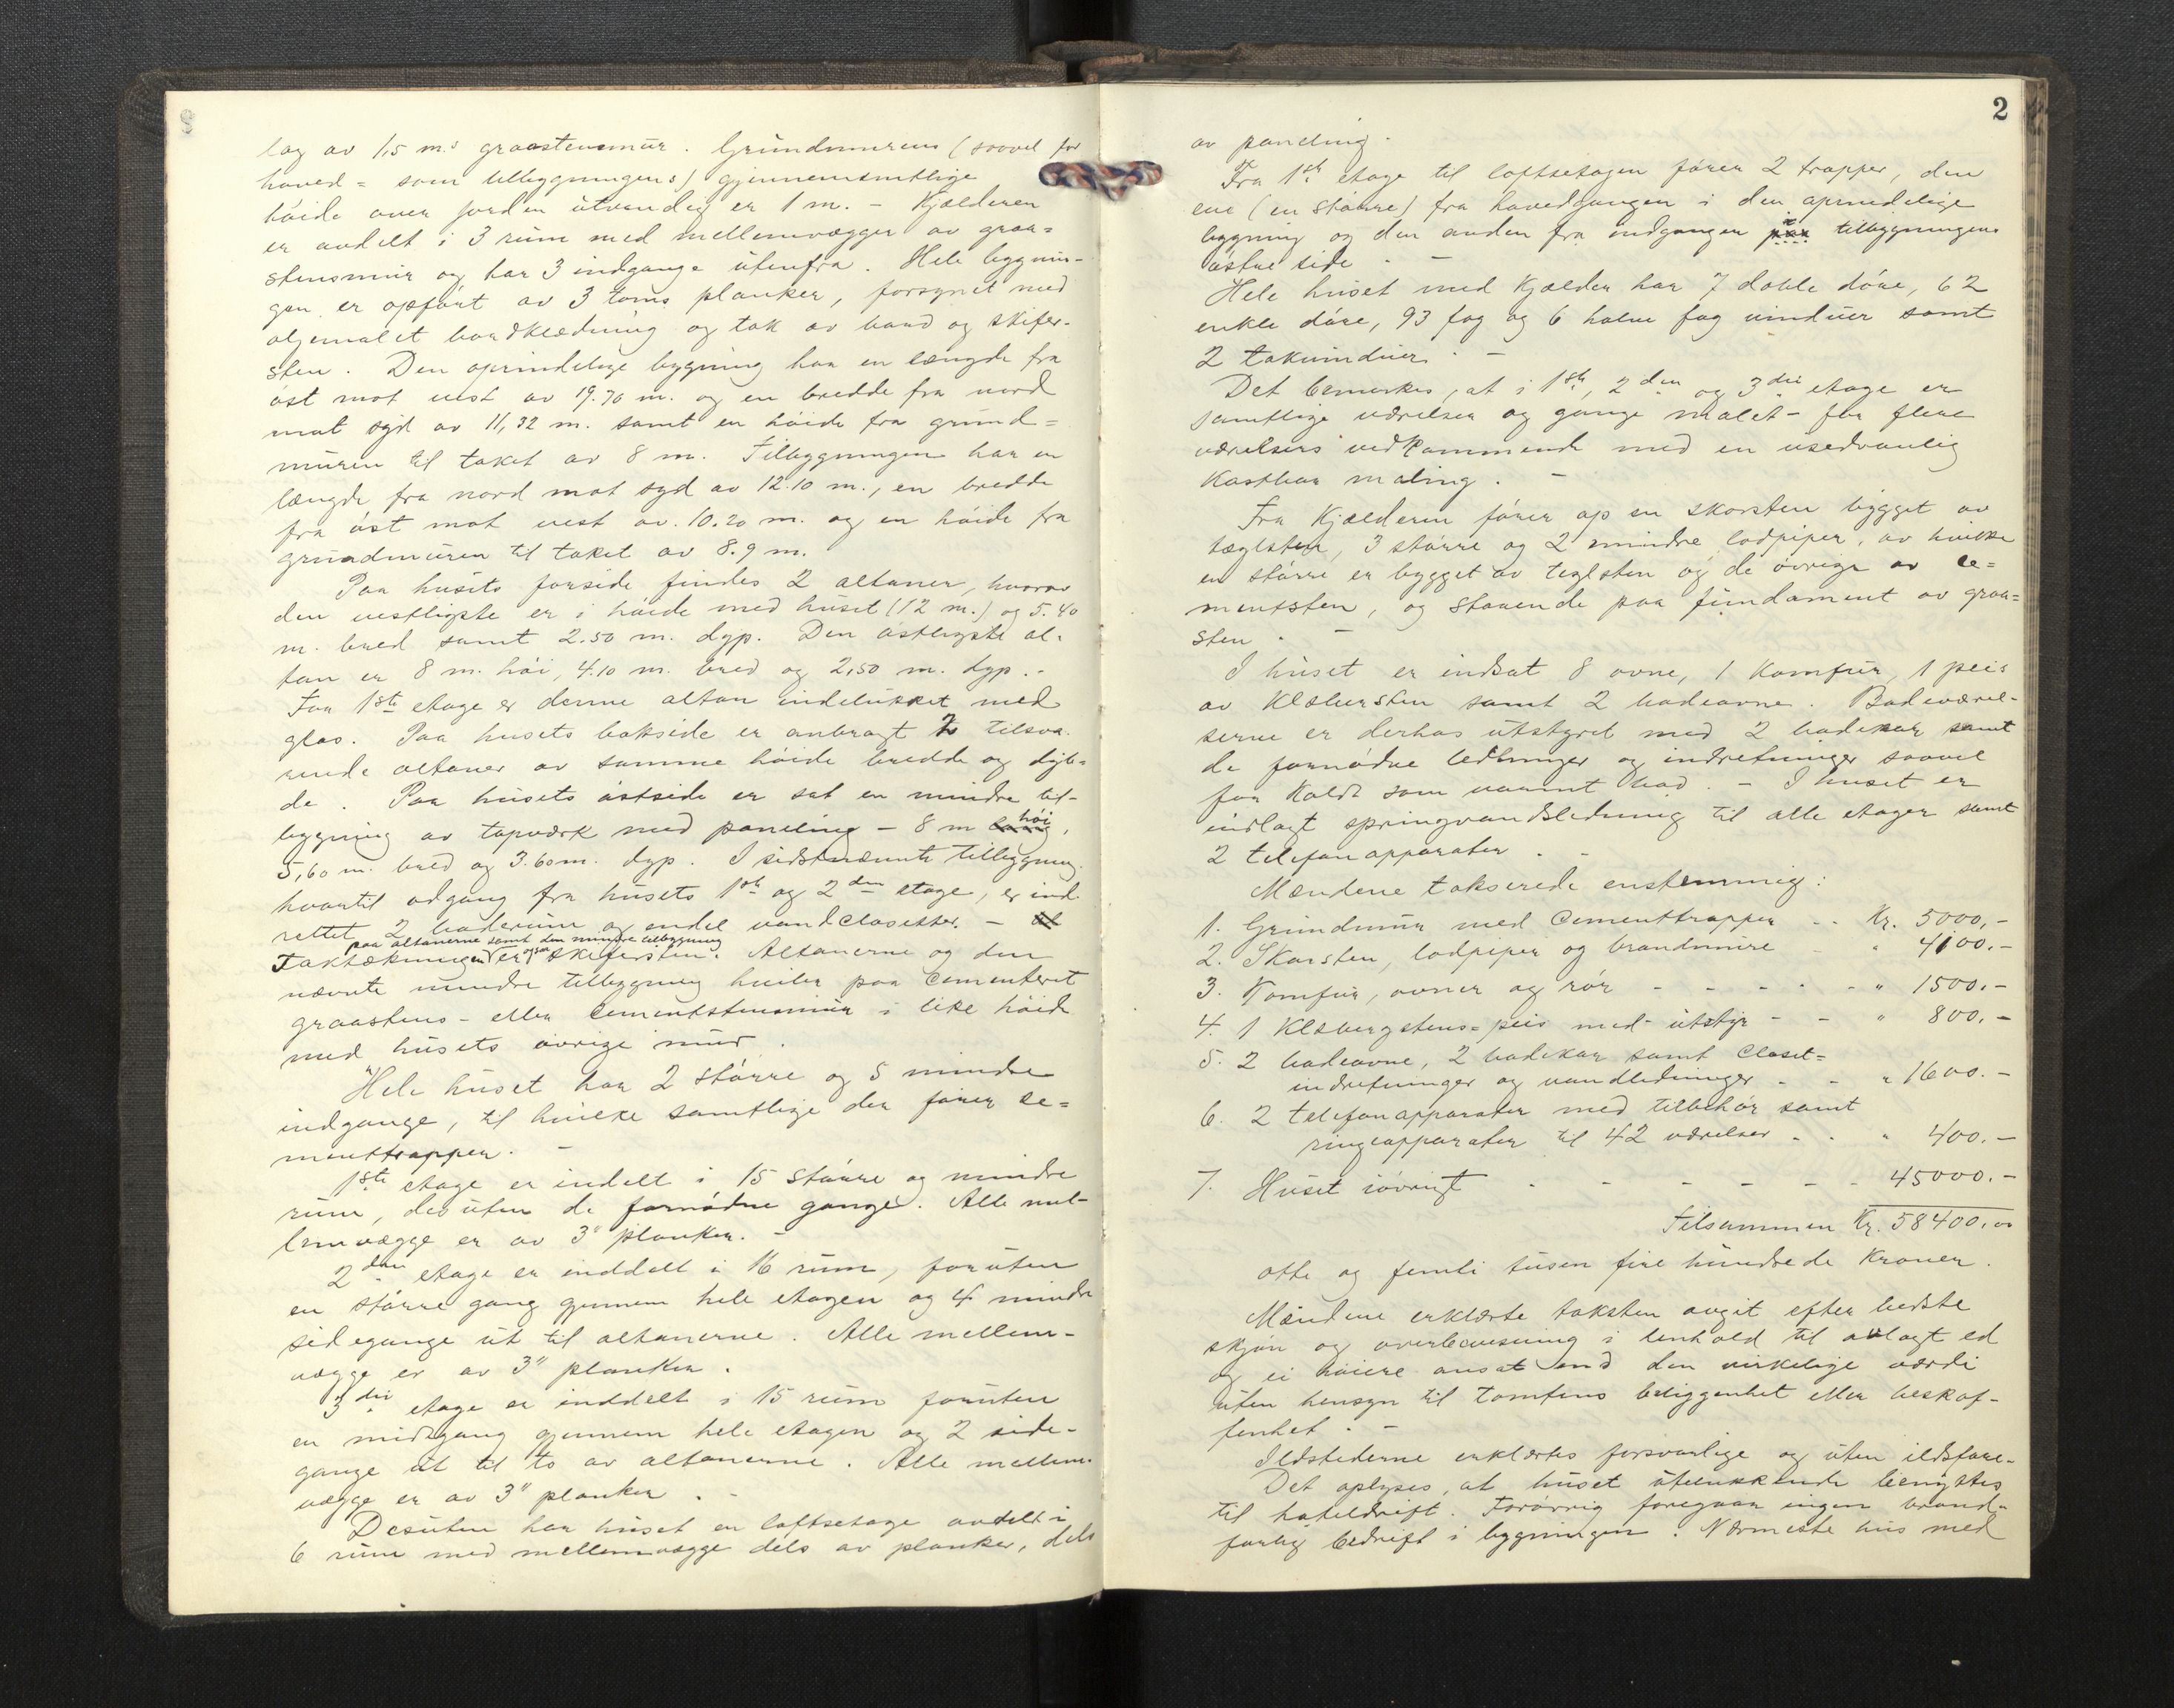 lag av 1,5 m.s graastensmur. Grundmurens (saavel for
hoved= som tilbygningens) gjennemsnitlige
höide over jorden utvendig er 1 m. - Kjælderen
er avdelt i 3 rum med mellemvægger av graa=
stensmur og har 3 indgange utenfra. Hele bygnin-
gen er opfört av 3 toms planker, forsynet med
oljemalet bordklædning og tak av bord og skifer-
sten. Den oprindelige bygning har en længde fra
öst mot vest av 19.70 m. og en bredde fra nord
mot syd av 11,32 m. samt en höide fra grund=
muren til taket av 8 m. Tilbygningen har en
længde fra nord mot syd av 12.10 m., en bredde
fra öst mot vest av 10.20 m. og en höide fra
grundmuren til taket av 8.9 m.
Paa husets forside findes 2 altaner, hvorav
den vestligste er i höide med huset (12 m.) og 5.40
m. bred samt 2.50 m. dyp. Den östligste al-
tan er 8 m. höi, 4.10 m. bred og 2,50 m. dyp. -
For 1ste etage er denne altan indelukket med
glas. Paa husets bakside er anbragt 2 tilsva-
rende altaner av samme höide bredde og dyb-
de. Paa husets östside er sat en mindre til-
bygning av topværk med paneling - 8 m höi,
5,60 m. bred og 3.60 m. dyp. I sidstnævnte tilbygning
hvortil adgang fra husets 1ste og 2den etage, er ind-
rettet 2 baderum og endel vandclosetter. -
paa altanerne samt den mindre tilbygning
Taktækningen er og skifersten. Altanerne og den
nævnte mindre tilbygning hviler paa cementeret
graastens- eller cementstensmur i like höide
med husets övrige mur.
Hele huset har 2 större og 5 mindre
indgange, til hvilke samtlige der förer ce=
menttrapper. -
1ste etage er indelt i 15 större og mindre
rum, desuten de fornödne gange. Alle mel-
lemvægge er av 3" planker. -
2den etage er inddelt i 16 rum, foruten
en större gang gjennem hele etagen og 4 mindre
sidegange ut til altanerne. Alle mellem-
vægge er av 3" planker.
3die etage er inddelt i 15 rum foruten
en midtgang gjennem hele etagen og 2 side-
gange ut til to av altanerne. Alle mellem-
vægge er av 3" planker. -
Desuten har huset en loftsetage avdelt i
6 rum med mellemvægge dels av planker, dels
2
av paneling.
Fra 1ste etage til loftsetagen förer 2 trapper, den
ene (en större) fra hovedgangen i den oprindelige
bygning og den anden fra indgangen paa tilbygningens
östre side. -
Hele huset med kjælder har 7 doble döre, 62
enkle döre, 93 fag og 6 halve fag vinduer samt
2 takvinduer. -
Det bemerkes, at i 1ste, 2den og 3die etage er
samtlige værelser og gange malet - for flere
værelsers vedkommende med en usedvanlig
kostbar maling. -
Fra kjælderen förer op en skorsten bygget av
teglsten, 3 större og 2 mindre lodpiper, av hvilke
en större er bygget av teglsten og de övrige av ce=
mentsten, og staaende paa fundament av graa=
sten. -
I huset er indsat 8 ovne, 1 komfur, 1 peis
av klebersten samt 2 badeovne. Badeværel-
serne er derhos utstyret med 2 badekar samt
de fornödne ledninger og indretninger saavel
for koldt som varmt bad. - I huset er
indlagt springvandsledning til alle etager samt
2 telefonapparater. -
Mændene takserede enstemmig:
1. Grundmur med cementtrapper - - Kr. 5000,-
2. Skorsten, lodpiper og brandmure - " 4100.-
3. Komfur, ovner og rör - - - - - " 1500.-
4. 1 Klebergstens=peis med utstyr - - " 800.-
5. 2 badeovne, 2 badekar samt closet=
indretninger og vandledninger - - " 1600.-
6. 2 telefonapparater med tilbehör samt
ringeapparater til 42 værelser - - " 400.-
7. Huset iövrigt - - - - - - 45000.-
Tilsammen Kr. 58400.00
otte og femti tusen fire hundrede kroner.
Mændene erklærte taksten avgit efter bedste
skjön og overbevisning i henhold til avlagt ed
og ei höiere ansat end den virkelige værdi
uten hensyn til tomtens beliggenhet eller beskaf-
fenhet. -
Ildstederne erklærtes forsvarlige og uten ildsfare.
Det oplyses, at huset utelukkende benyttes
til hoteldrift. Forövrig foregaar ingen brand-
farlig bedrift i bygningen. Nærmeste hus med